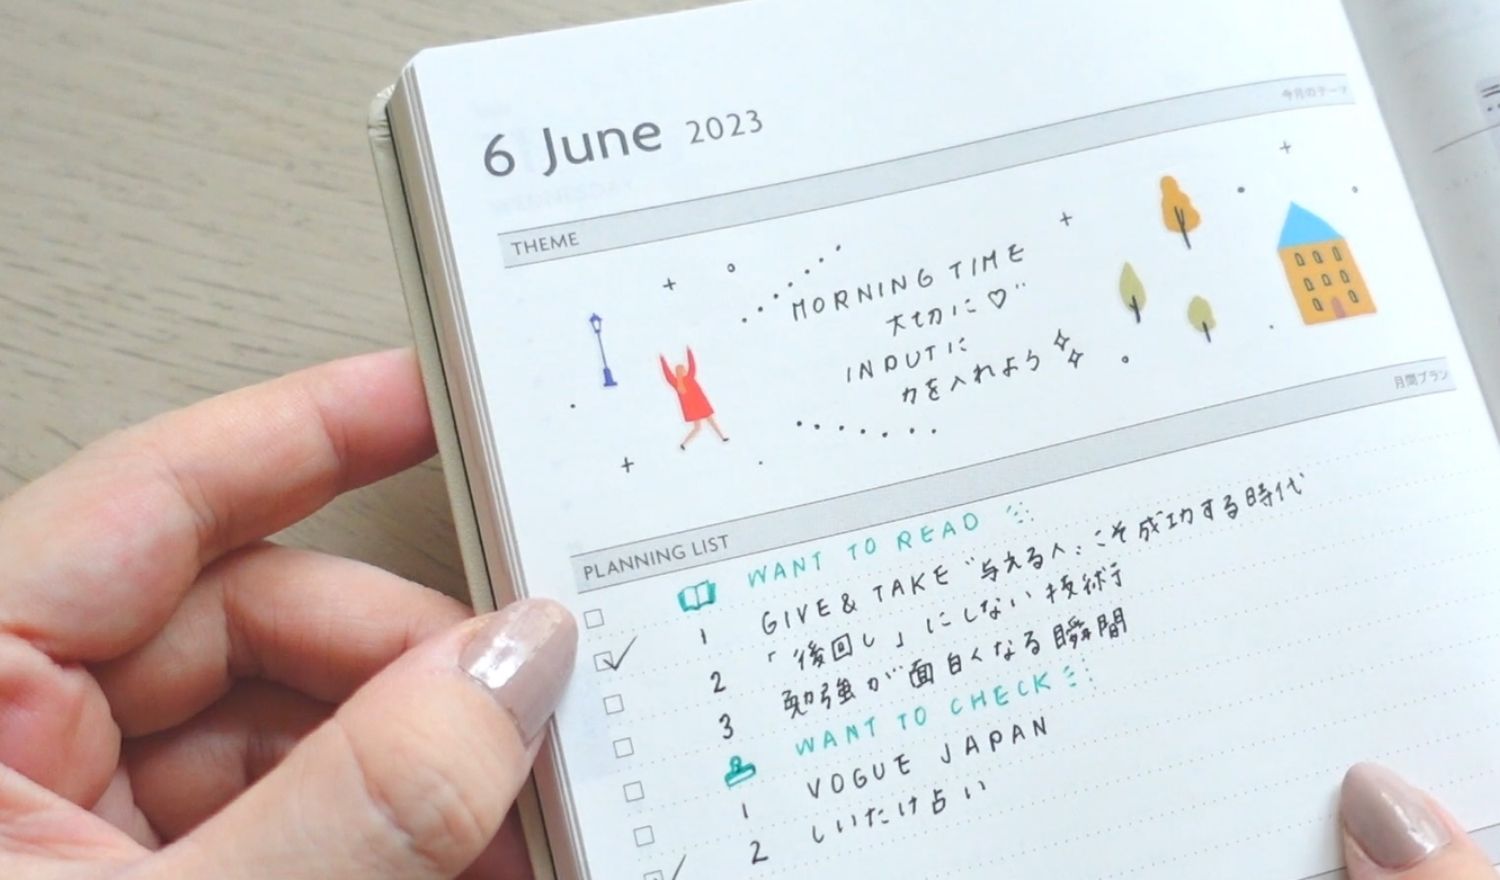 6 June 2023
今月のテーマ
THEME
MORNING TIME
大切に♡"
INPUTに
力を入れよう
月間プラン
PLANNING LIST
WANT TO READ
1 GIVE & TAKE "与える人"こそ成功する時代
2 「後回し」にしない技術
3 勉強が面白くなる瞬間
WANT TO CHECK
1 VOGUE JAPAN
2 しいたけ占い